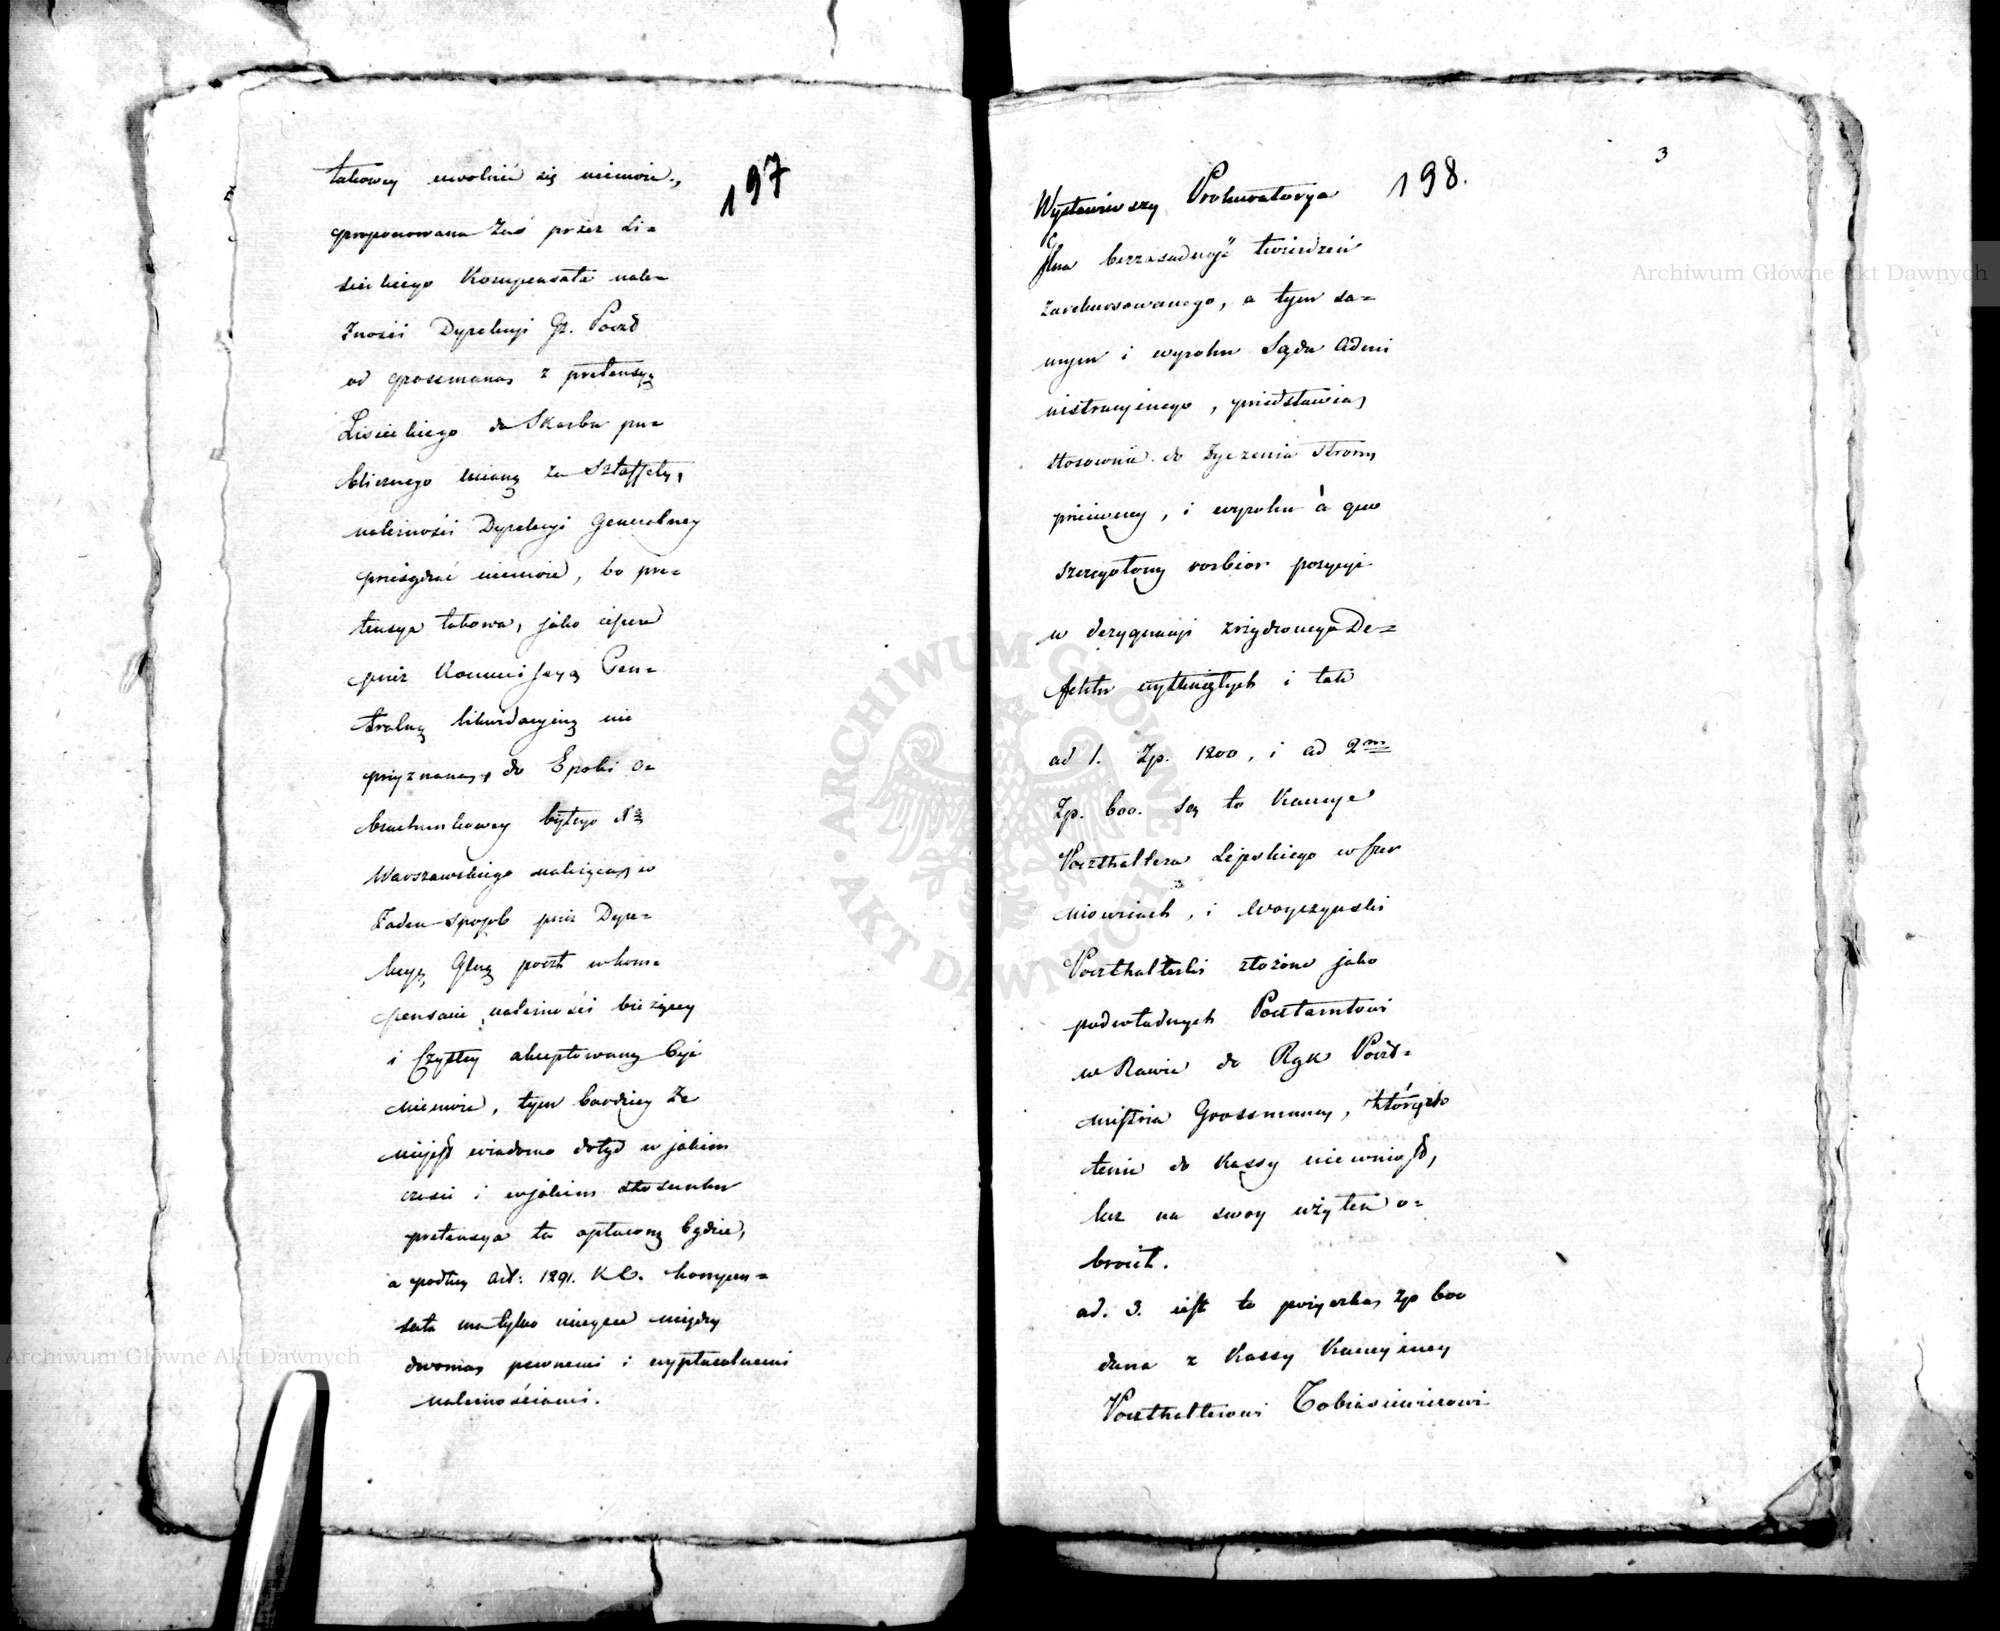 197
takowey uwolnić się niemoże,
proponowana zaś przez Li=
sieckiego Kompensata nale=
żności Dyrekcyi Gł. Poczt
od Grossmana z pretensyą
Lisieckiego do Skarbu pu=
blicznego mianą za Sztaffety,
należności Dyrekcyi Generalney
przesądzać niemoże, bo pre=
tensya takowa, jako
przez Kommissyą Cen=
tralną likwidacyiną nie
przyznana, do Epoki o=
brachunkowey byłego Xa
Warszawskiego należąca, w
żaden sposób przez Dyre=
kcyą Głną poczt w kom=
pensacie należności bieżącey
i czystey akceptowaną być
niemoże, tym bardziey że
niejest wiadomo dotąd w jakim
czasie i w jakim stosunku
pretensya ta opłaconą będzie,
a podług Art: 1291. K.C. kompen=
sata ma tylko mieysce między
dwoma pewnemi i wypłacalnemi
należnościami.
198.
3
Wystawiwszy Prokuratorya
Glna bezzasadność twierdzeń
zarekursowanego, a tym sa=
mym i wyroku Sądu Admi
nistracyjnego, przedstawia,
stosownie do życzenia strony
przeciwney, i wyroku à quo
szczegółowy rozbior pozycyi
w dezygnacyi zrządzonego De=
fektu wytkniętych i tak
ad 1. Zp. 1200, i ad 2m
Zp. 600. są to Kaucye
Poczthaltera Lipskiego w
niewicach, i Woyczyński
Poczthalterki złożone jako
podwładnych Pocztamtowi
w Rawie do Rąk Poczt=
mistrza Grossmana, których
tenże do Kassy niewniosł,
lecz na swoy użytek o=
brocił.
ad. 3. iest to pożyczka, Zp 600
dana z Kassy Kaucyiney
Poczthalterowi Tobiasiewiczowi
Archiwum Główne Akt Dawnych
Archiwum Główne Akt Dawnych
ARCHIWUM GŁÓWNE AKT DAWNYCH